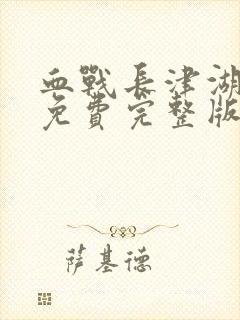 血戰長津湖
免費完整版
萨基德